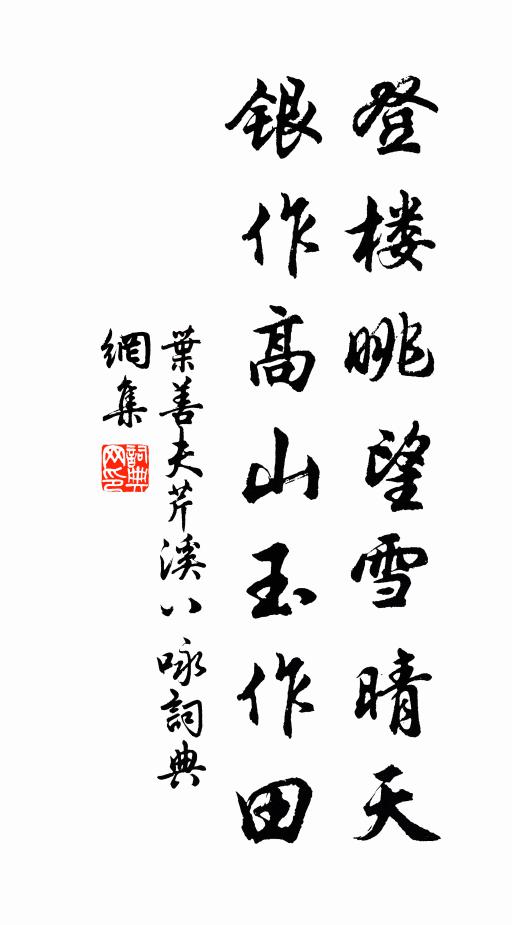 登楼眺望雪晴天
银作高山玉作田
葉善夫芹溪八咏詞典
網集
詞典
网印